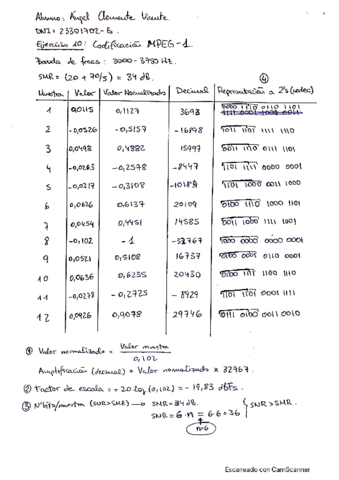 Alumno: Ángel Clemente Vicente.
DNI: 23301702-E.
Ejercicio 10: Codificación MPEG-1.
Banda de frecs: 3000-3750 Hz.
SMR = (20 + 70/5) = 34 dB.
④
Muestra Valor Valor Normalizado Decimal Representación a 2's (codes)
1 0,0115 0,1127 3693
2 -0,0526 -0,5157 -16898 1011 1101 1111 1110
3 0,0498 0,4882 15997 0011 1110 0111 1101
4 -0,0263 -0,2578 -8447 1101 1111 0000 0001
5 -0,0317 -0,3108 -10184 1101 1000 0011 1000
6 0,0626 0,6137 20109 0100 1110 1000 1101
7 0,0454 0,4451 14585 0011 1000 1111 1001
8 -0,102 -1 -32767 1000 0000 0000 0001
9 0,0521 0,5108 16737 0100 0001 0110 0001
10 0,0636 0,6235 20430 0100 1111 1100 1110
11 -0,0278 -0,2725 -8929 1101 1101 0001 1111
12 0,0926 0,9078 29746 0111 0100 0011 0010
① Valor normalizado = Valor muestra / 0,102
Amplificación (decimal) = Valor normalizado x 32767
② Factor de escala = +20 log (0,102) = -19,83 dBFs.
③ Nº bits/muestra (SNR>SMR) → SMR = 34 dB.
SNR = 6·n = 6·6 = 36
SNR > SMR.
n=6
Escaneado con CamScanner